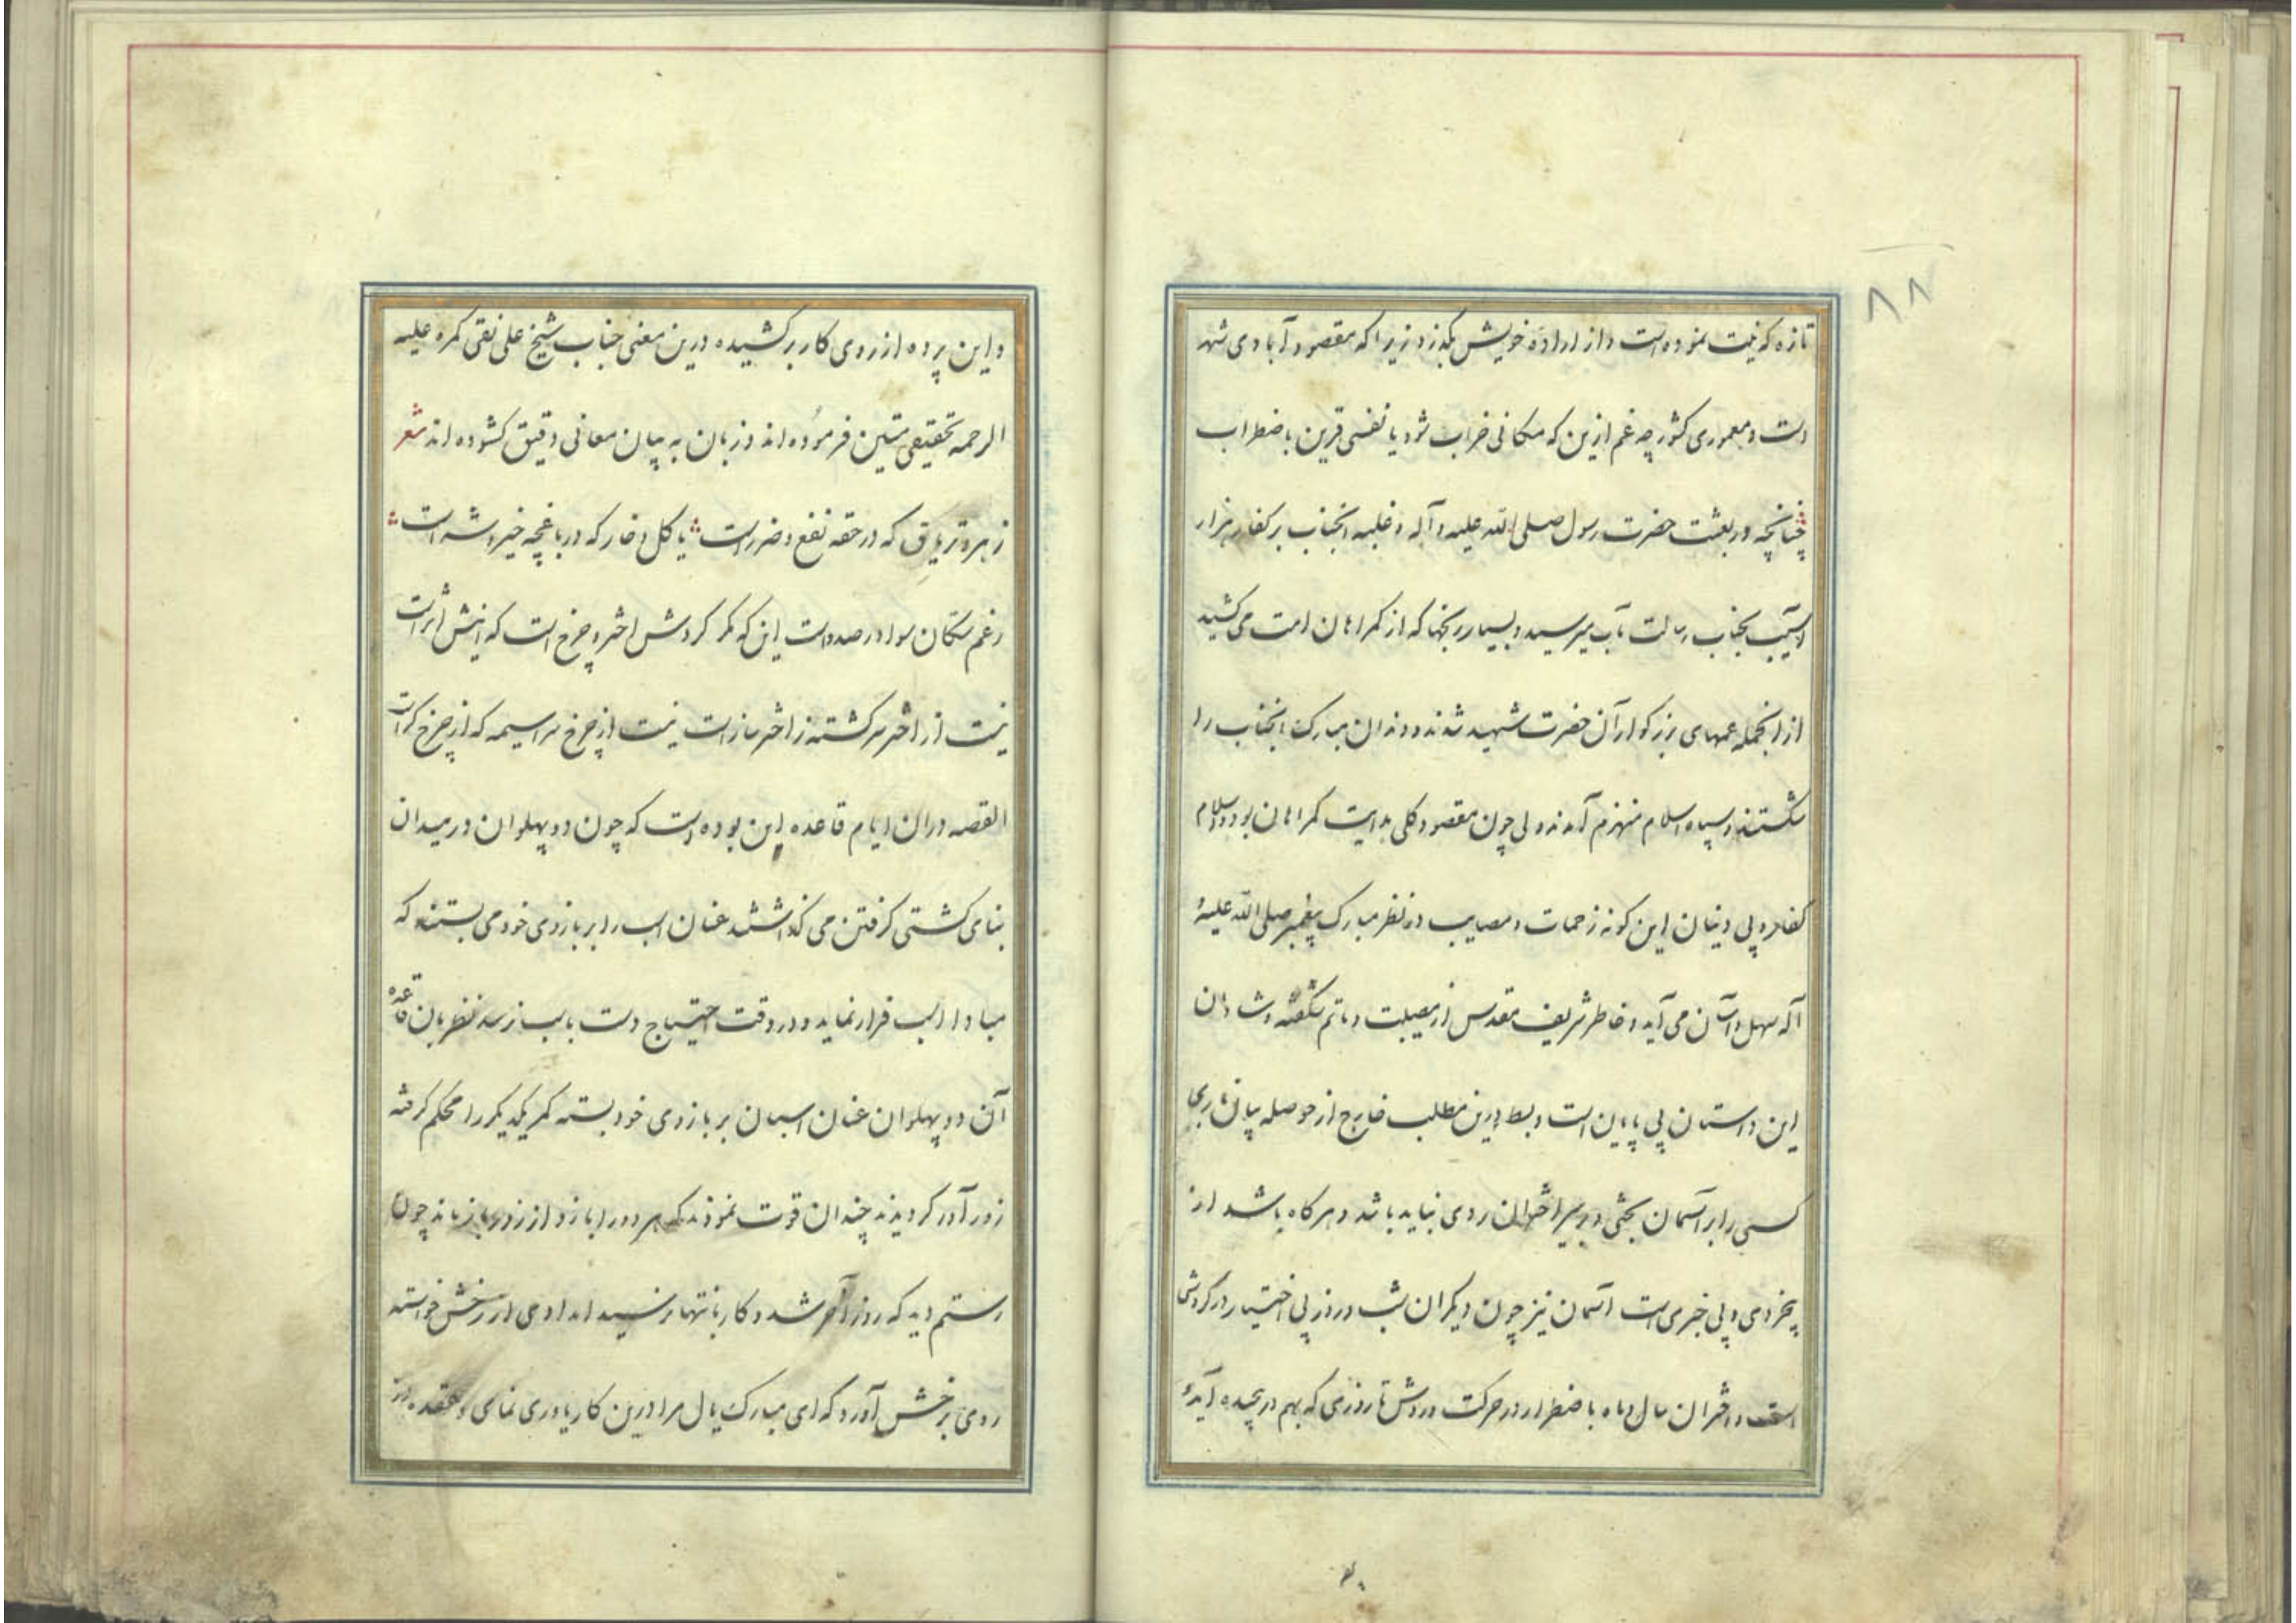 ۸۸
تازه که نیت نموده است و از اراده خویش بگذرد زیرا که مقصود آبادی شهر
است و معموری کشور چه غم ازین که مکانی خراب شود یا نفسی قرین باضطراب
چنانچه در بعثت حضرت رسول صلی الله علیه و آله و غلبه انجناب بر کفار هزار
آسیب بجناب رسالت مآب میرسید و بسیار رنجها که از کمراهان امت می کشید
از انجمله عمهای بزرکوار آن حضرت شهید شدند و دندان مبارک انجناب را
شکستند و سپاه اسلام منهزم آمدند ولی چون مقصود کلی هدایت کمراهان بود و اسلام
کفار و بی دینان این کونه زحمات و مصایب در نظر مبارک پیغمبر صلی الله علیه و
آله سهل و آسان می آید و خاطر شریف مقدس از مصیبت و ماتم شکفته و شادان
این داستان بی پایان است و بسط درین مطلب خارج از حوصله بیان باری
کسی را بر آسمان بحثی و بر سیر اختران ردی نباید باشد و هر کاه باشد از
بیخردی و بی خبری است آسمان نیز چون دیکران شب و روز بی اختیار در کردش
است و اختران سال و ماه باضطرار در حرکت و روش تا روزی که بهم در پیچیده آید
و این پرده از روی کار بر کشیده درین معنی جناب شیخ علی نقی کمره علیه
الرحمه تحقیقی متین فرموده اند و زبان به بیان معانی دقیق کشوده اند شعر
زهر و تریاق که در حقه نفع و ضرر است یا کل و خار که در باغچه خیر و شر است
زعم سکان سوادر صدد است این که مکر کردش اختر و چرخ است که اینش اثر است
نیست از اختر سرکشته ز اختر ساز است نیست از چرخ سراسیمه که از چرخ کر است
القصه دران ایام قاعده این بوده است که چون دو پهلوان در میدان
بنای کشتی کرفتن می کذاشتند عنان اسب را بر بازوی خود می بستند که
مبادا اسب فرار نماید و در وقت احتیاج دست باسب نرسد نظر بان قاعده
آن دو پهلوان عنان اسبان بر بازوی خود بسته کمر یکدیکر را محکم کرفته
زور آور کردیدند چندان قوت نمودند که هر دو را بازو از زور باز ماند چون
رستم دید که روز آخر شد و کار بانتها نرسید امدادی از رخش خواسته
روی برخش آورد که ای مبارک یال مرا درین کار یاوری نمای و عقده